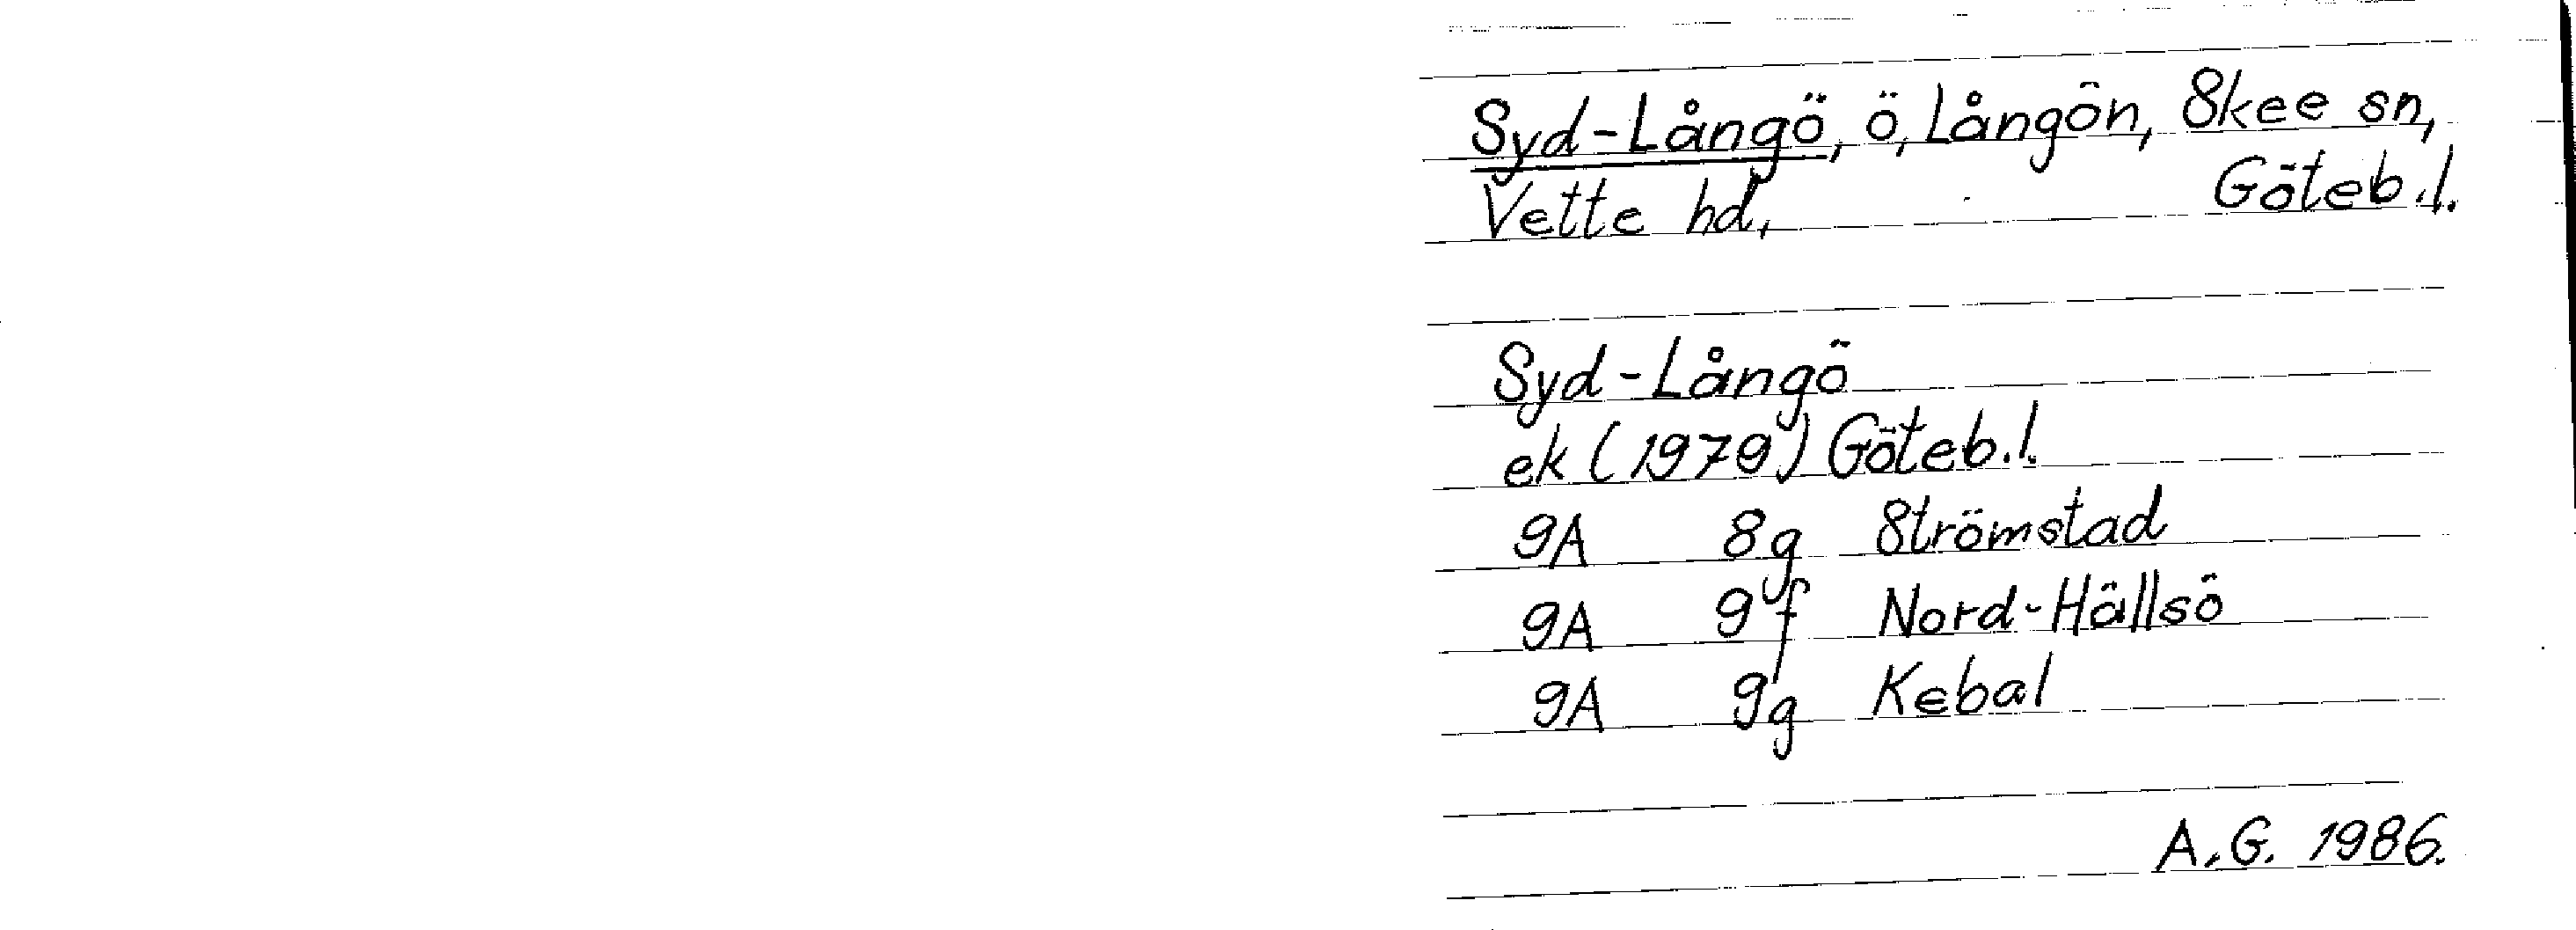 Syd-Långö, ö, Långön, Skee sn,
Vette hd, Göteb.l.
Syd-Långö
ek (1979) Göteb.l.
9A 8g Strömstad
9A 9f Nord-Hällsö
9A 9g Kebal
A.G. 1986.